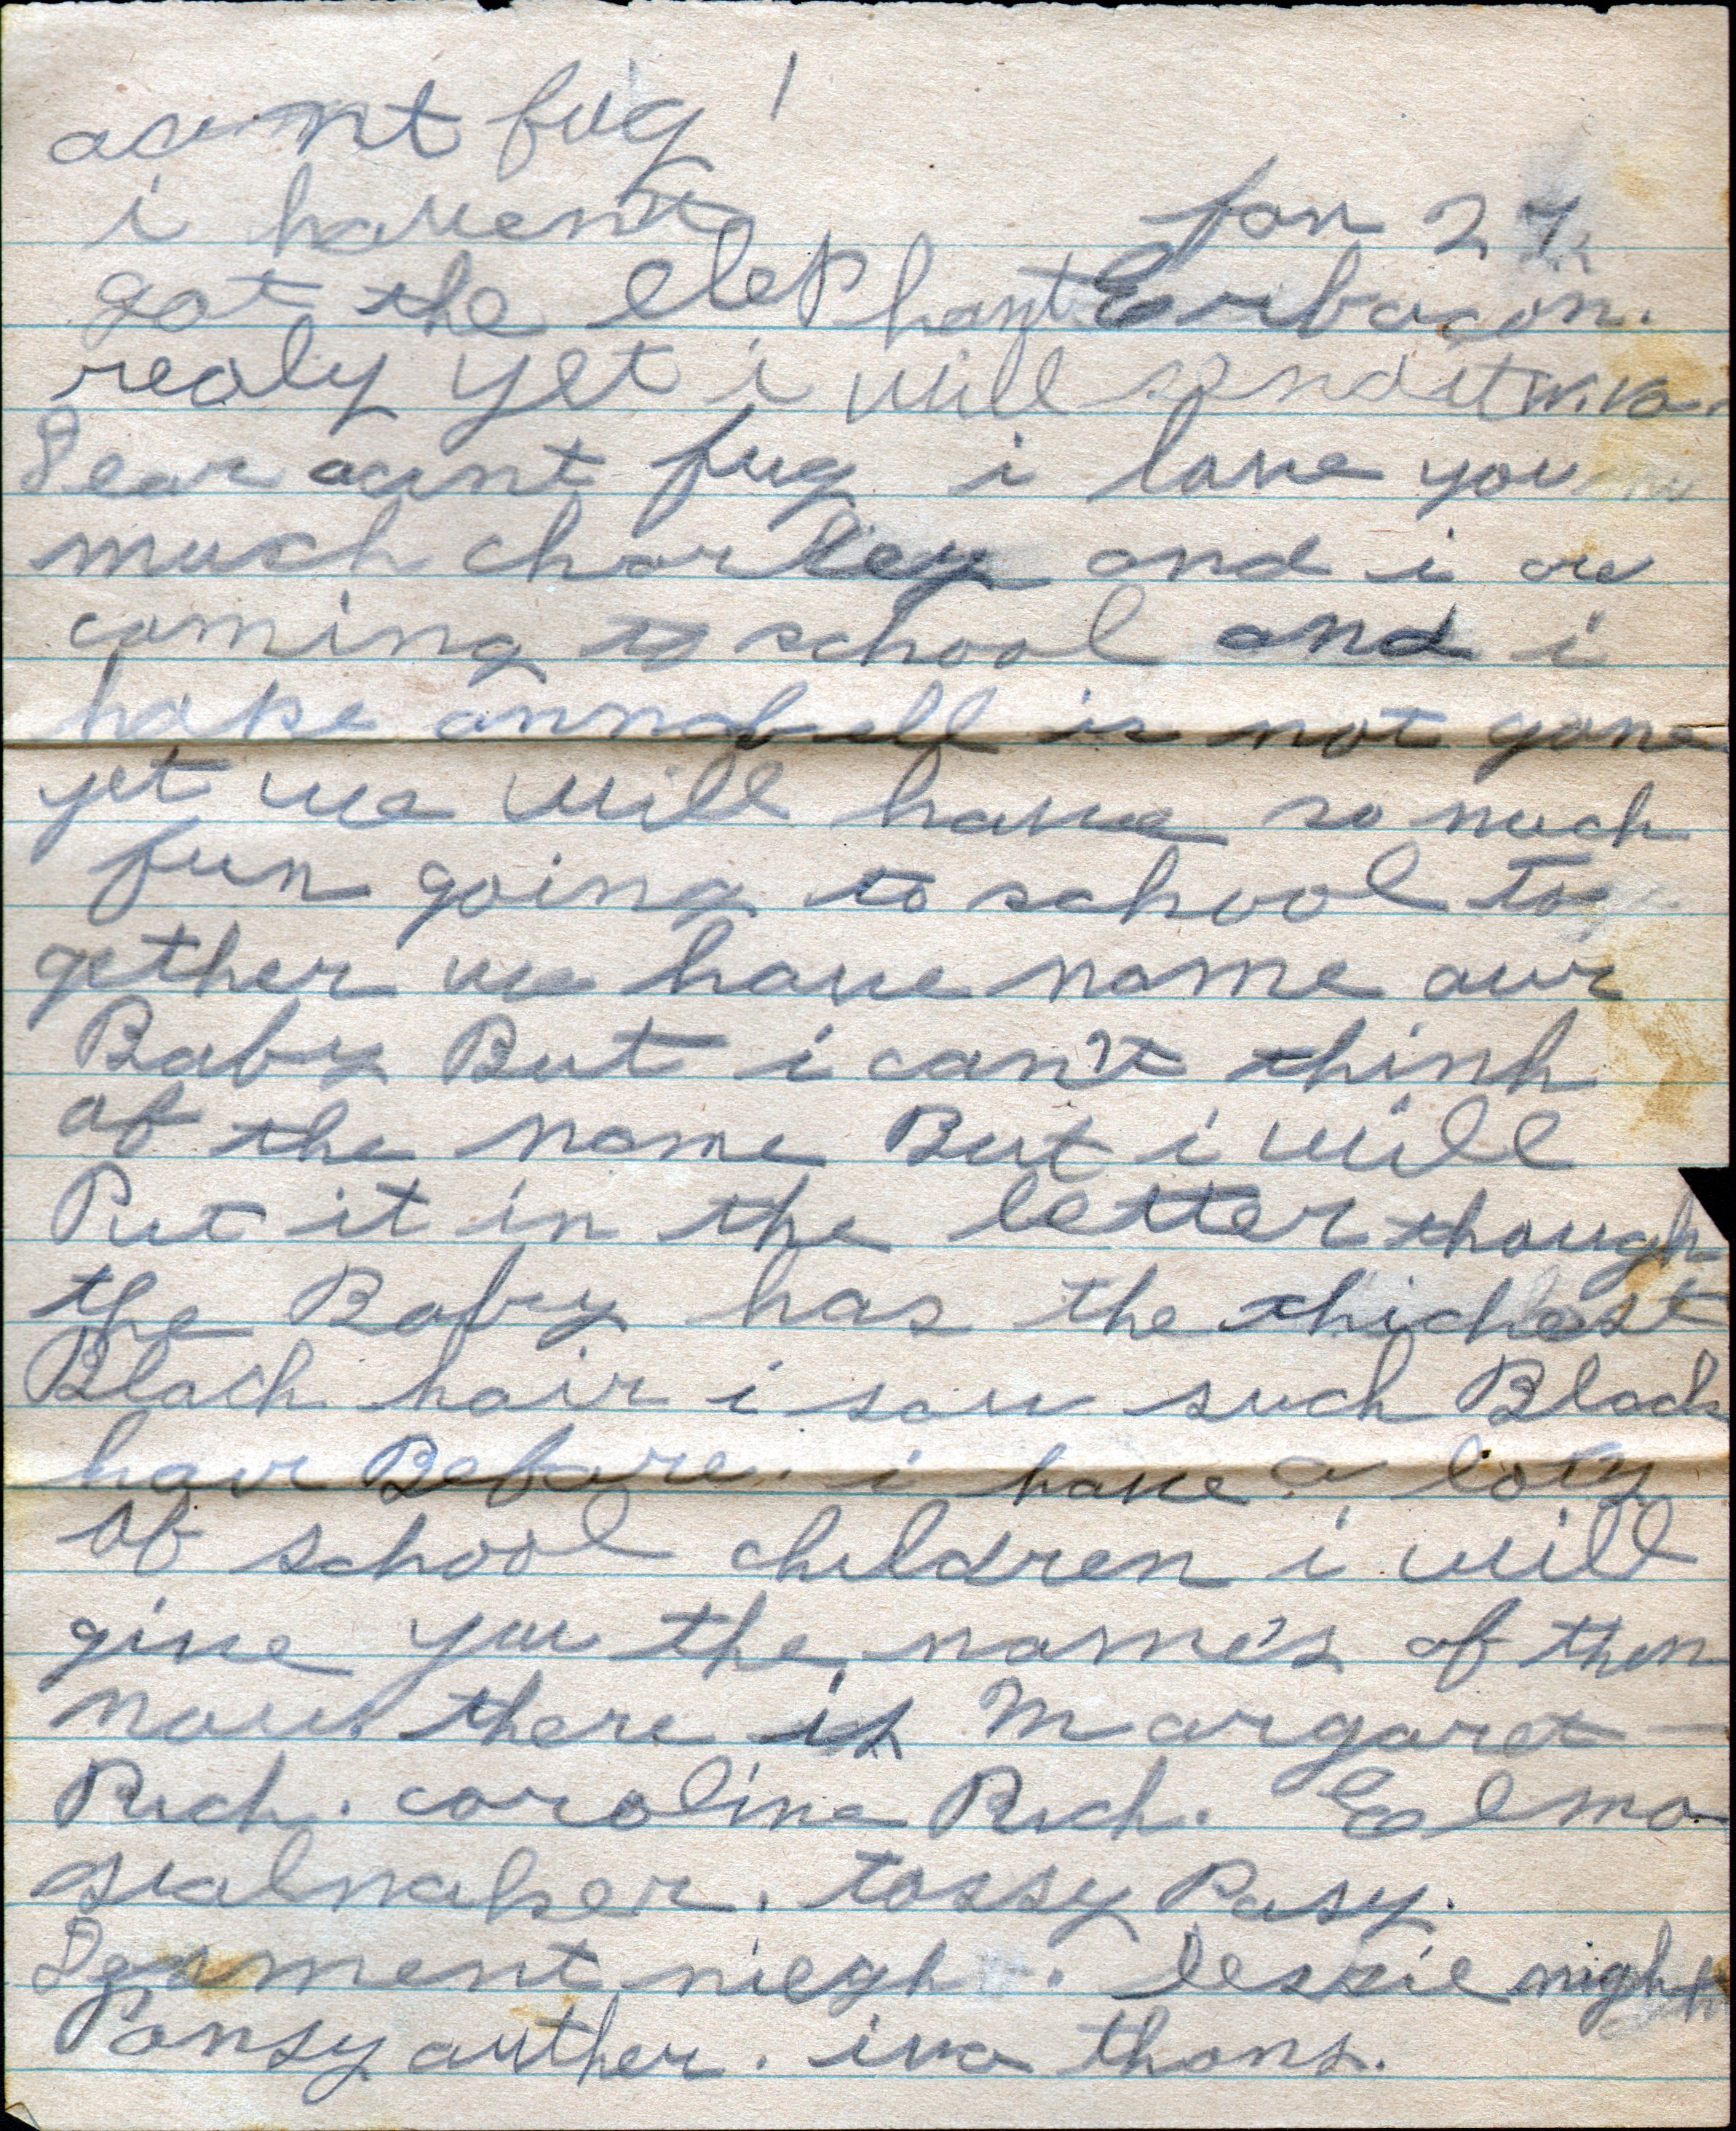 aunt fug !
i havent
Jan 27
got the elePhant
Erbacon.
realy yet i will send it
W.Va.
Dear aunt fug i love you
much charley and i are
coming to school and i
hope annabell is not gone
yet we will have so much
fun going to school to
gether we have name our
Baby But i can't think
of the name But i will
Put it in the letter though
the Baby has the thickest
Black hair i saw such Black
hair Before. i have a loty
of school children i will
give you the name's of them
now. there is Margaret
Rich. caroline Rich. Elma
. tossy Pasy.
niegh . lessie night
Pansy auther. iva thons.